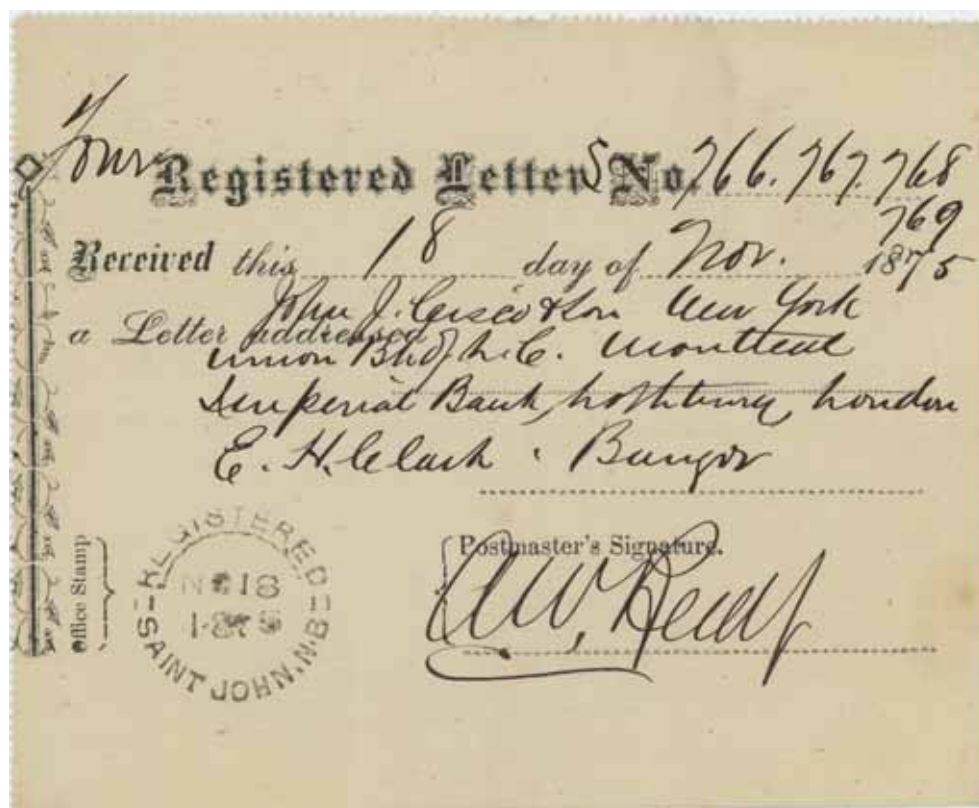 Four Registered Letters No. 766. 767. 768
769
Received this 18 day of Nov. 1875
a Letter addressed John J. Cisco & Son New York
Union Bk of L.C. Montreal
Imperial Bank, Lothbury, London
E. H. Clark . Bangor
Office Stamp
REGISTERED
NO 18
1875
SAINT JOHN. N.B
Postmaster's Signature.
A W, Reedy